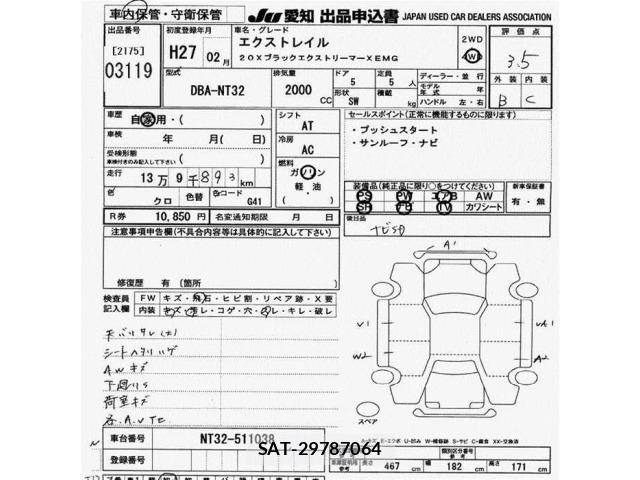 車内保管・守衛保管
JU 愛知 出品申込書 JAPAN USED CAR DEALERS ASSOCIATION
出品番号
[2175]
03119
初度登録年月
H27 02月
車名・グレード
エクストレイル
20XブラックエクストリーマーXEMG
2WD
4WD
評価点
3.5
型式
DBA-NT32
排気量
2000 CC
ドア
5
定員
5 人
形状
SW
積載
kg
ディーラー・並行
モデル年式 年
ハンドル 左・右
外装 内装
B C
車歴
自家用・( )
車検
年 月( 日)
受検形態
車検付きのみ記入して下さい
走行
13万9千893km
色
クロ
色替
色コード
G41
シフト
AT
冷房
AC
燃料
ガソリン
軽・油
( )
セールスポイント(正常に機能するものに限ります)
・プッシュスタート
・サンルーフ・ナビ
装備品(純正品に限り○をつけてください)
PS PW エアB AW
SR TV カワシート
新車保証書
有・無
R券 10,850円 名変通知期限 月 日
後日品
ナビSD
注意事項申告欄(不具合内容等は具体的に記入して下さい)
修復歴 有 〔箇所
検査員記入欄
FW キズ・飛石・ヒビ割・リペア跡・X要
内装 キズ・汚レ・コゲ・穴・凹レ・キレ・破レ
シートヘタリ
AWキズ
荷室キズ
A1
V1
W2
A2
スペア
A-キズ E-エクボ U-凹み W-補修跡 S-サビ C-腐食 XX-交換済
車台番号 NT32-511038
登録番号
SAT-29787064
類別区分番号
参考
車庫証明用参考 長さ 467 cm 幅 182 cm 高さ 171 cm